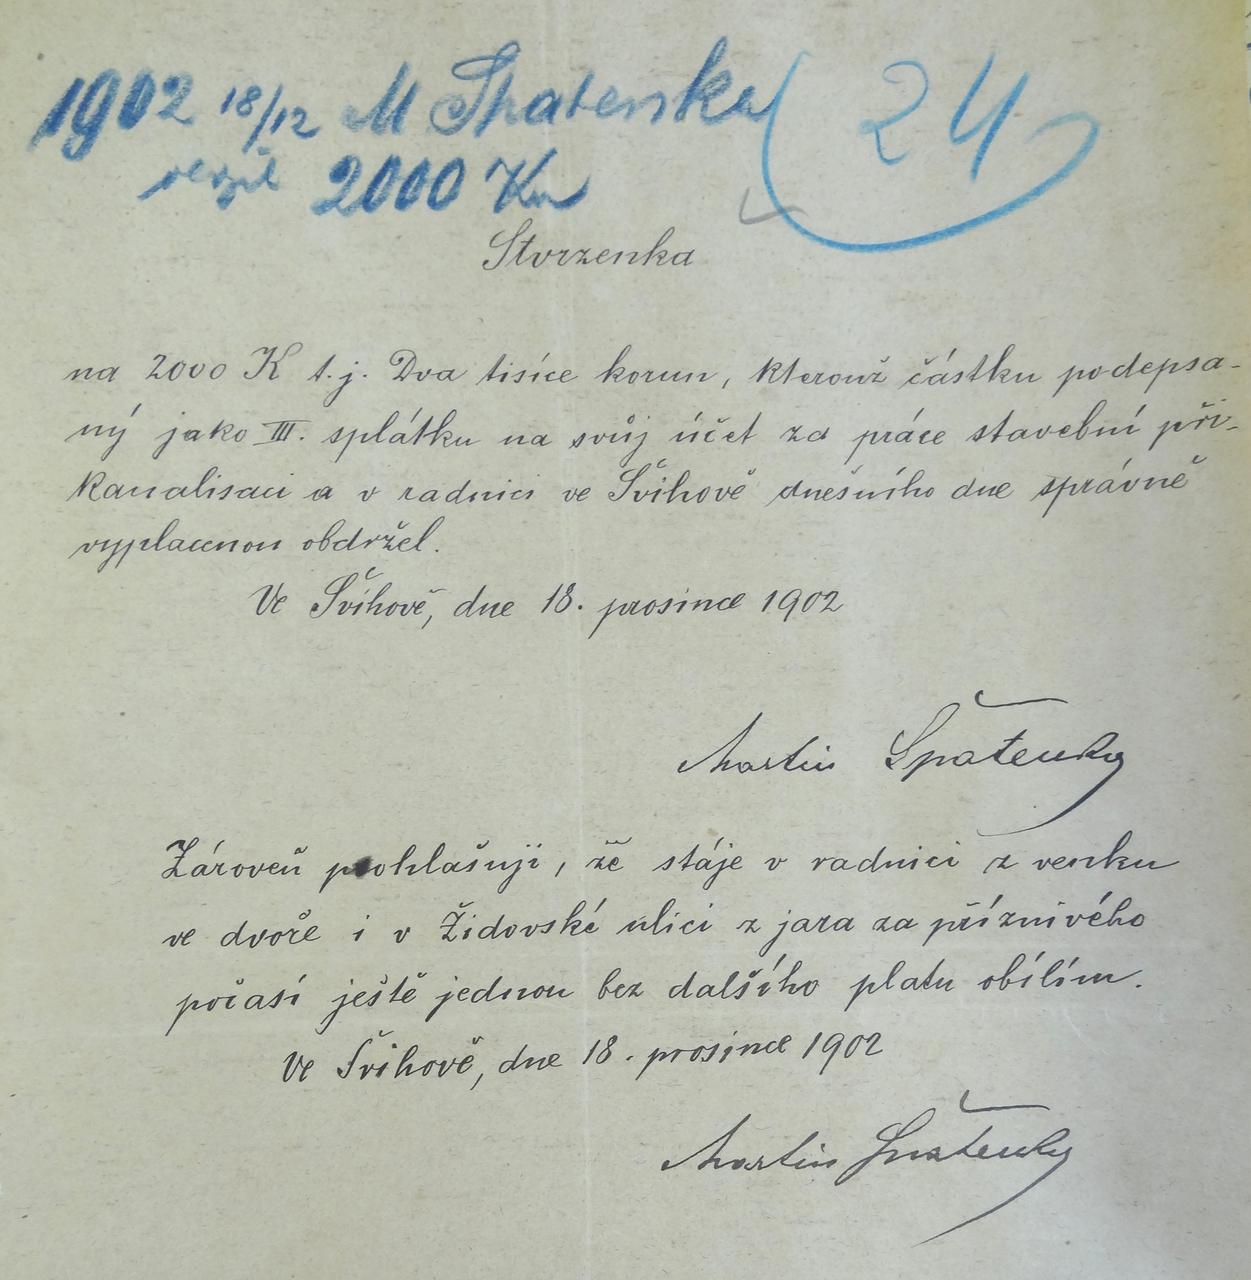 1902 18/12 M Spatenka
24
2000 Kn
Stvrzenka
na 2000 K t. j. Dva tisíce korun, kterouž částku podepsa-
ný jako III. splátku na svůj účet za práce stavební při-
kanalisaci a v radnici ve Švihově dnešního dne správně
vyplacenou obdržel.
Ve Švihově, dne 18. prosince 1902
Martin Špatenky
Zároveň prohlašuji, že stáje v radnici z venku
ve dvoře i v Židovské ulici z jara za příznivého
počasí ještě jednou bez dalšího platu obílím.
Ve Švihově, dne 18. prosince 1902
Martin Špatenky